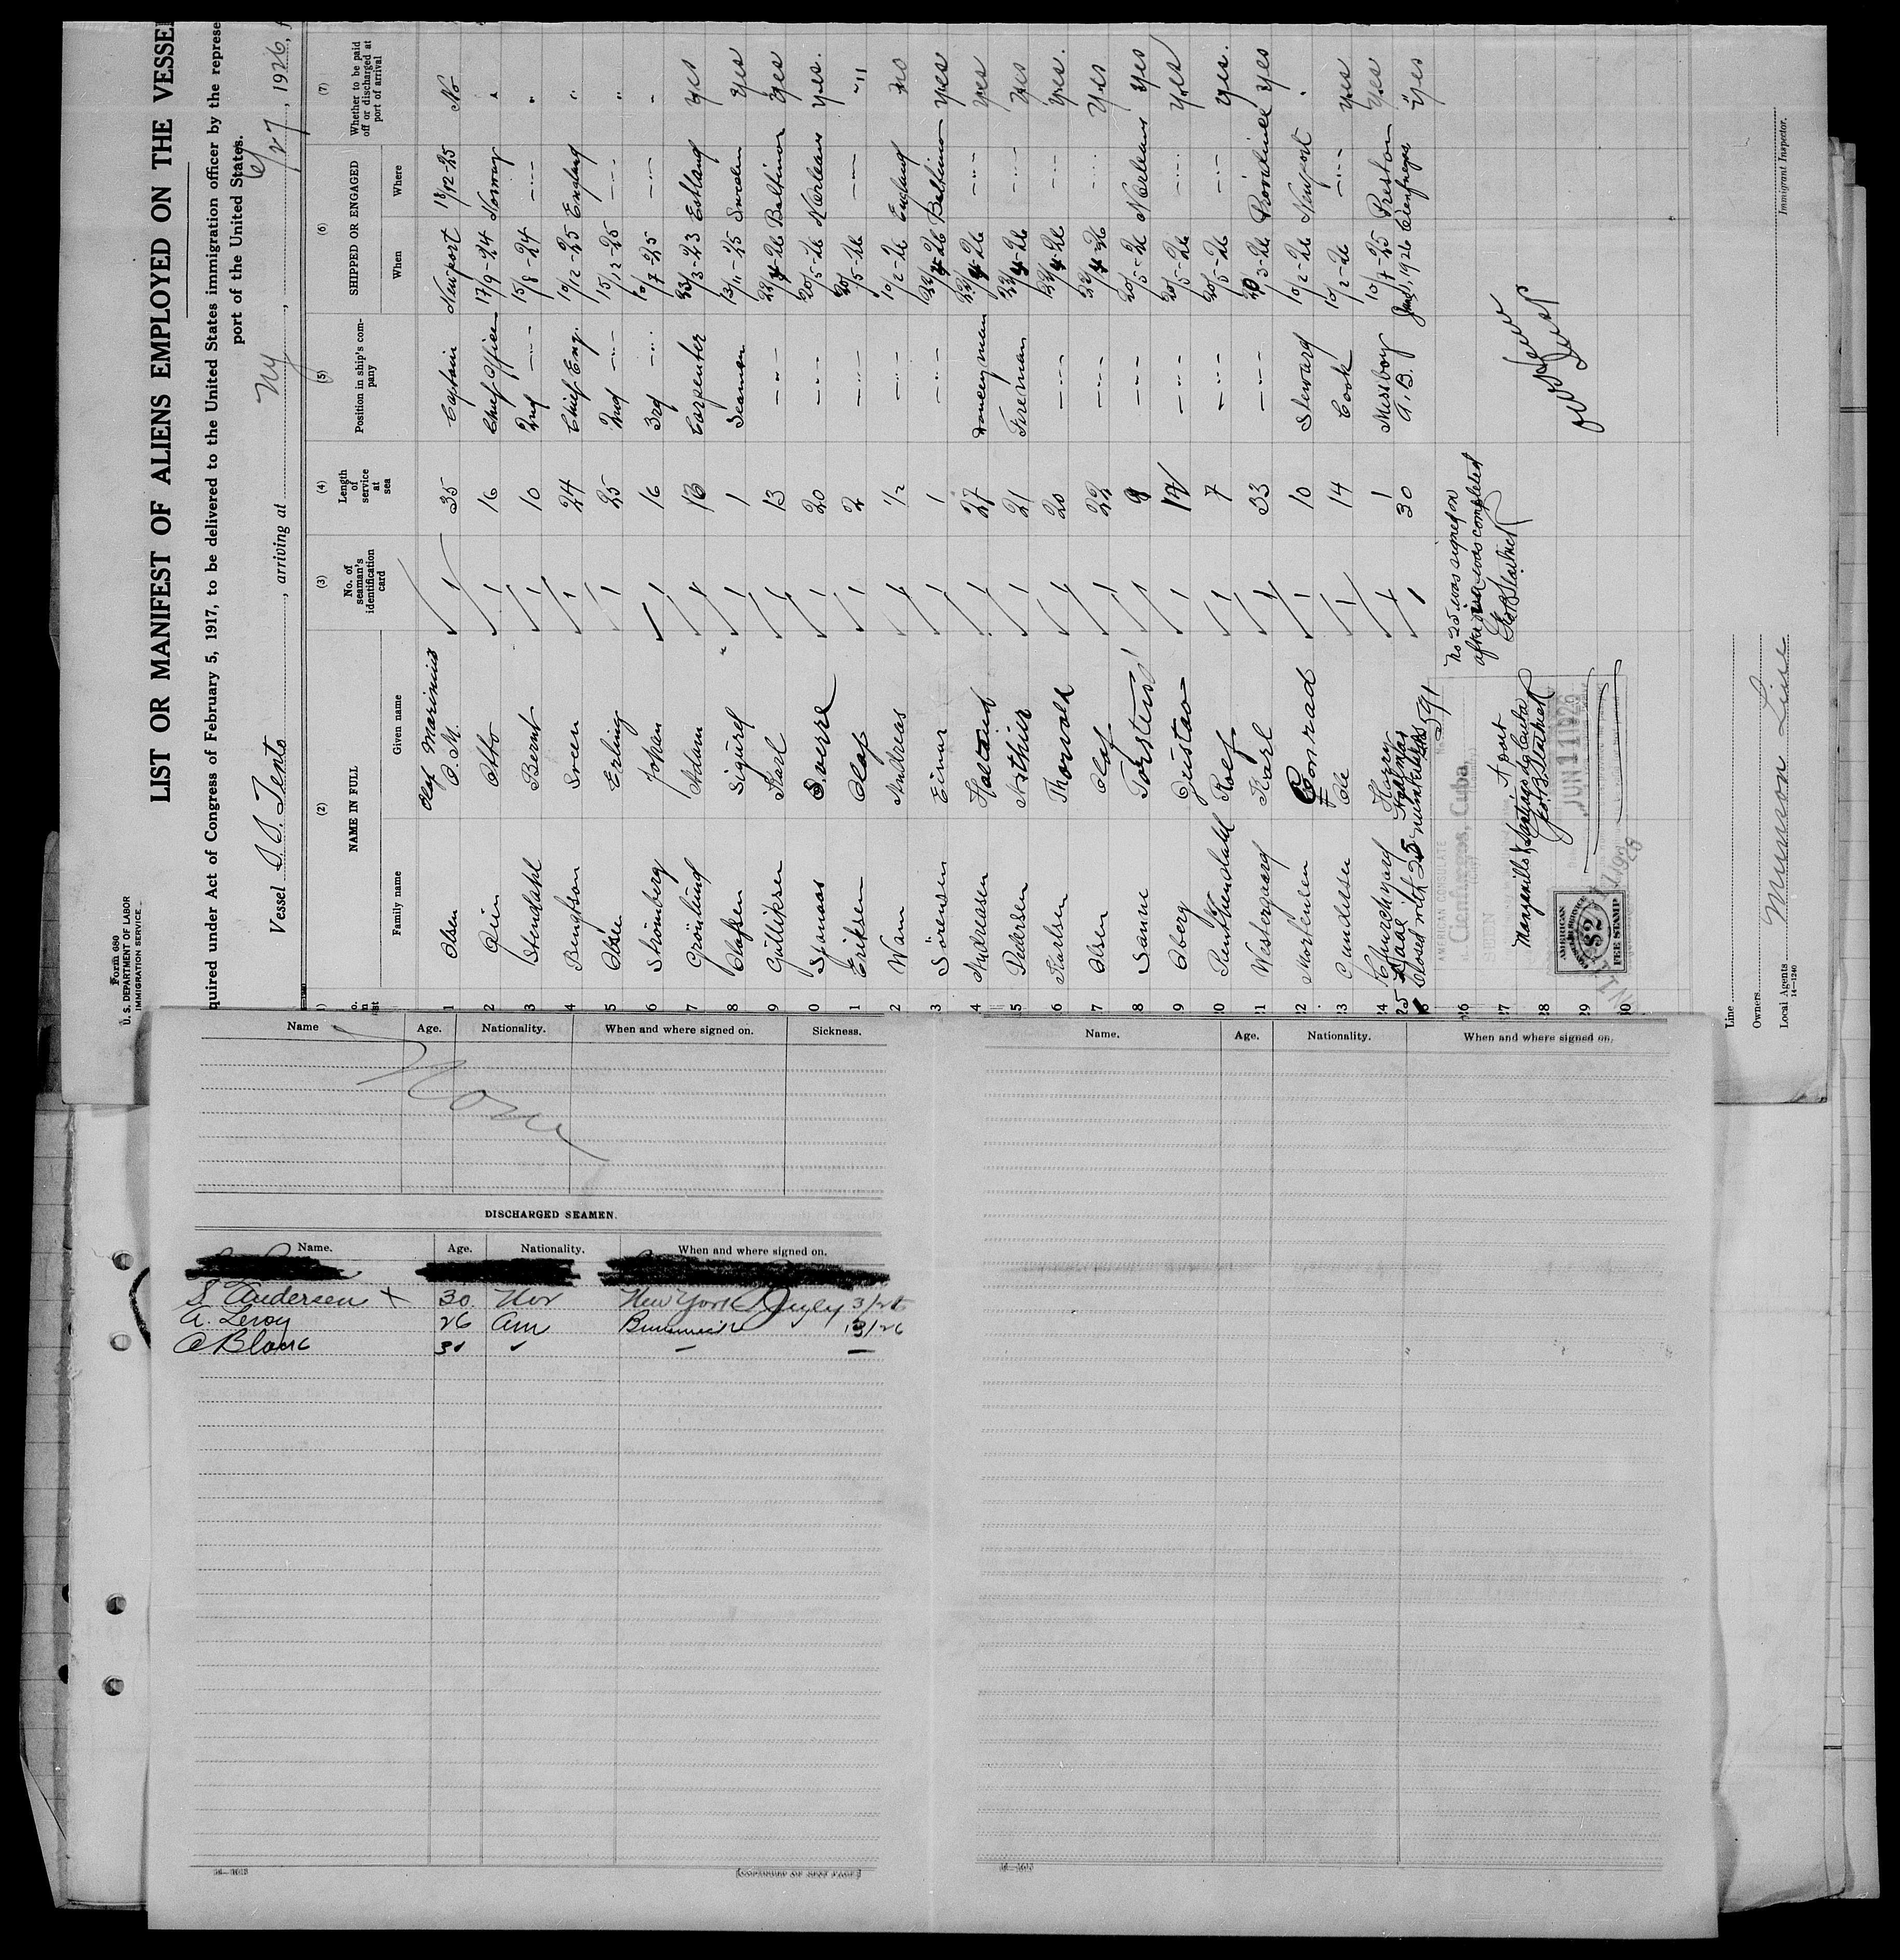 Form 680
U. S. DEPARTMENT OF LABOR
IMMIGRATION SERVICE
LIST OR MANIFEST OF ALIENS EMPLOYED ON THE VESSEL
quired under Act of Congress of February 5, 1917, to be delivered to the United States immigration officer by the represe
port of the United States.
Vessel S. S. Tento, arriving at NY, 6/27, 1926, f
(2) (3) (4) (5) (6) (7)
NAME IN FULL No. of seaman's identification card Length of service at sea Position in ship's company SHIPPED OR ENGAGED Whether to be paid off or discharged at port of arrival
Family name Given name When Where
Olaf Marinius
1 Olsen O. M. 35 Captain Newport 18/12-25 No
2 Otto 16 Chief Officer 17/9-24 Norway "
3 Stendahl Bernt 10 2nd 15/8-24 -"- "
4 Bengtson Sven 24 Chief Eng. 10/12-25 England "
5 Olsen Erling 25 2nd -"- 15/12-25 -"- "
6 Strömberg Johan 16 3rd -"- 10/7-25 -"- "
7 Grönlund Adam 16 Carpenter 23/3-23 Estland yes
8 Olafsen Sigurd 1 Seaman 13/11-25 Sweden yes
9 Gulliksen Karl 13 -"- 22/4-26 Baltimor yes
0 Sverre 20 -"- 20/5-26 N.Orleans yes.
1 Eriksen Olaf 2 -"- 20/5-26 -"- -"-
2 Wam Andreas 1/2 -"- 10/2-26 England no
3 Sörensen Einar 1 -"- 22/4-26 Baltimor yes
4 Andreasen 27 Donkeyman 22/4-26 -"- yes
5 Pedersen 21 Fireman 22/4-26 -"- yes
6 Karlsen Thorvald 20 -"- 22/4-26 -"- yes.
7 Olsen Olaf 22 -"- 22/4-26 -"- yes
8 Sanne Torsten 9 -"- 20/5-26 N.Orleans yes
9 Oberg Gustav -"- 20/5-26 -"- yes
10 Rolf 7 -"- 20/5-26 -"- yes.
11 Westergaard Karl 33 -"- 20/3-26 Providence yes
12 Mortensen Conrad 10 Steward 10/2-26 Newport "
13 Gundersen Ole 14 Cook 10/2-26 -"- yes
14 Churchyard Harry 1 Messboy 10/7-25 Preston yes
25 Hjalmar 30 A. B. June 1, 1926 Cienfuegos yes
Closed with 25 names
no 25 was signed on
after visa was completed
AMERICAN CONSULATE
Cienfuegos, Cuba,
SEEN
591
26
27
28
29
30
Manzanillo
Santiago de Cuba
JUN 11 1926
AMERICAN
$2
FEE STAMP
Line
Owners
Local Agents Munson Line
14-1240
Immigrant Inspector.
Name Age. Nationality. When and where signed on. Sickness.
None
DISCHARGED SEAMEN.
Name. Age. Nationality. When and where signed on.
S Andersen x 30 Nor New York July 3/26
A. Leroy 26 Am Brunswick 13/26
A Blanc 31 " - -
[CONTINUED ON NEXT PAGE]
Name. Age. Nationality. When and where signed on.